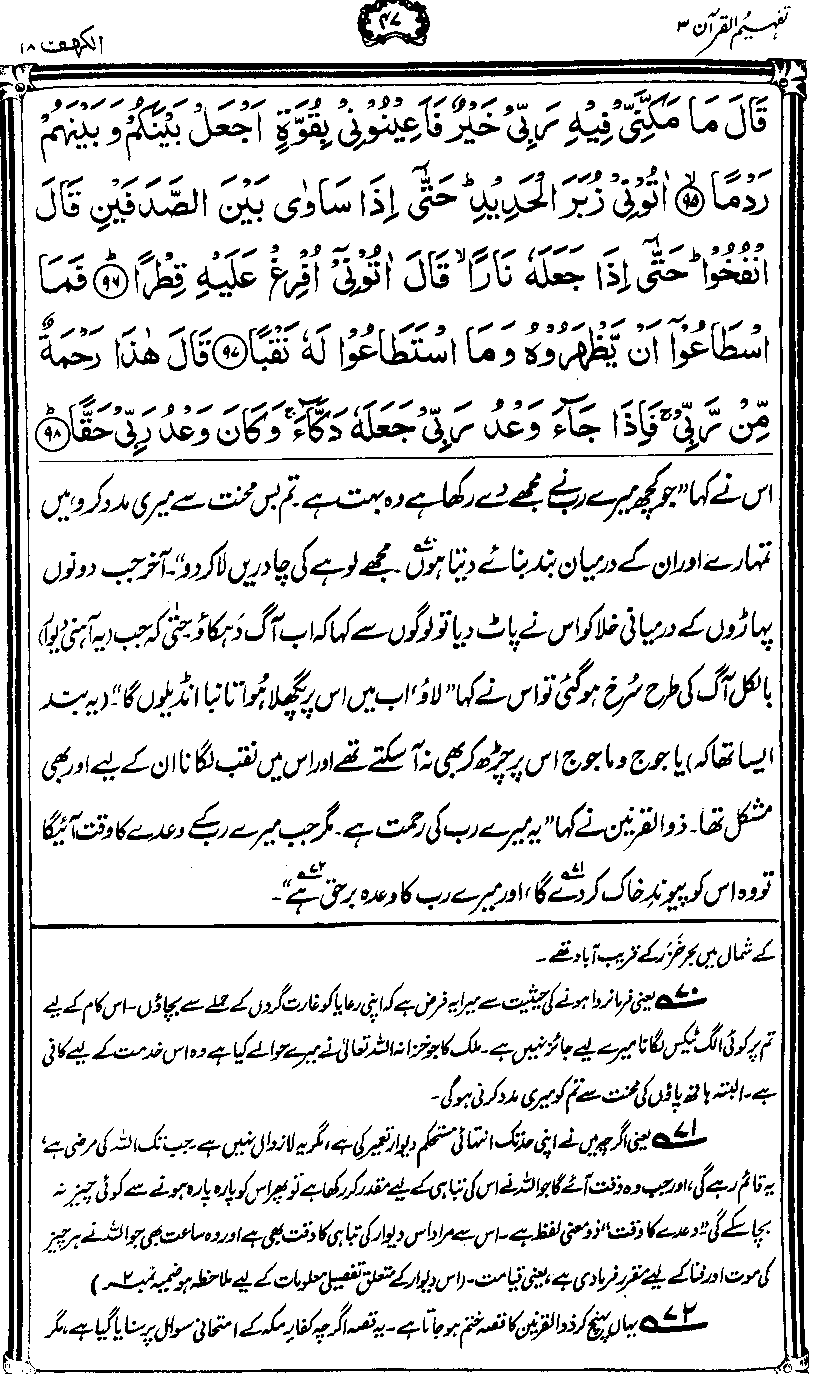 تفہیم القرآن ۳
۴۷
الکہف ۱۸
قَالَ مَا مَكَّنِّىْ فِيْهِ رَبِّىْ خَيْرٌ فَاَعِيْنُوْنِىْ بِقُوَّةٍ اَجْعَلْ بَيْنَكُمْ وَبَيْنَهُمْ
رَدْمًا ۙ﴿۹۵﴾ اٰتُوْنِىْ زُبَرَ الْحَدِيْدِ ؕ حَتّٰىٓ اِذَا سَاوٰى بَيْنَ الصَّدَفَيْنِ قَالَ
انْفُخُوْا ؕ حَتّٰىٓ اِذَا جَعَلَهٗ نَارًا ۙ قَالَ اٰتُوْنِىْٓ اُفْرِغْ عَلَيْهِ قِطْرًا ؕ﴿۹۶﴾ فَمَا
اسْطَاعُوْٓا اَنْ يَّظْهَرُوْهُ وَمَا اسْتَطَاعُوْا لَهٗ نَقْبًا ﴿۹۷﴾ قَالَ هٰذَا رَحْمَةٌ
مِّنْ رَّبِّىْ ۚ فَاِذَا جَآءَ وَعْدُ رَبِّىْ جَعَلَهٗ دَكَّآءَ ۚ وَكَانَ وَعْدُ رَبِّىْ حَقًّا ؕ﴿۹۸﴾
اس نے کہا ”جو کچھ میرے رب نے مجھے دے رکھا ہے وہ بہت ہے۔ تم بس محنت سے میری مدد کرو، میں
تمہارے اور ان کے درمیان بند بنائے دیتا ہوں۷۰۔ مجھے لوہے کی چادریں لا کر دو“۔ آخر جب دونوں
پہاڑوں کے درمیانی خلا کو اس نے پاٹ دیا تو لوگوں سے کہا کہ اب آگ دَہکاؤ۔ حتیٰ کہ جب (یہ آہنی دیوار)
بالکل آگ کی طرح سُرخ ہو گئی تو اس نے کہا ”لاؤ، اب میں اس پر پگھلا ہُوا تانبا انڈیلوں گا“۔ (یہ بند
ایسا تھا کہ) یاجوج و ماجوج اس پر چڑھ کر بھی نہ آ سکتے تھے اور اس میں نقب لگانا ان کے لیے اور بھی
مشکل تھا۔ ذوالقرنین نے کہا ”یہ میرے رب کی رحمت ہے۔ مگر جب میرے رب کے وعدے کا وقت آئیگا
تو وہ اس کو پیوندِ خاک کر دے گا۷۱، اور میرے رب کا وعدہ برحق ہے۷۲“۔
کے شمال میں بحر خَزَر کے قریب آباد تھے۔
۷۰ یعنی فرمانروا ہونے کی حیثیت سے میرا یہ فرض ہے کہ اپنی رعایا کو غارت گروں کے حملے سے بچاؤں۔ اس کام کے لیے
تم پر کوئی الگ ٹیکس لگانا میرے لیے جائز نہیں ہے۔ ملک کا جو خزانہ اللہ تعالیٰ نے میرے حوالے کیا ہے وہ اس خدمت کے لیے کافی
ہے۔ البتہ ہاتھ پاؤں کی محنت سے تم کو میری مدد کرنی ہو گی۔
۷۱ یعنی اگرچہ میں نے اپنی حد تک انتہائی مستحکم دیوار تعمیر کی ہے، مگر یہ لازوال نہیں ہے۔ جب تک اللہ کی مرضی ہے،
یہ قائم رہے گی، اور جب وہ وقت آئے گا جو اللہ نے اس کی تباہی کے لیے مقدر کر رکھا ہے تو پھر اس کو پارہ پارہ ہونے سے کوئی چیز نہ
بچا سکے گی۔ ”وعدے کا وقت“ ذو معنی لفظ ہے۔ اس سے مراد اس دیوار کی تباہی کا وقت بھی ہے اور وہ ساعت بھی جو اللہ نے ہر چیز
کی موت اور فنا کے لیے مقرر فرما دی ہے، یعنی قیامت۔ (اس دیوار کے متعلق تفصیلی معلومات کے لیے ملاحظہ ہو ضمیمہ نمبر ۲)
۷۲ یہاں پہنچ کر ذوالقرنین کا قصہ ختم ہو جاتا ہے۔ یہ قصہ اگرچہ کفارِ مکہ کے امتحانی سوال پر سنایا گیا ہے، مگر